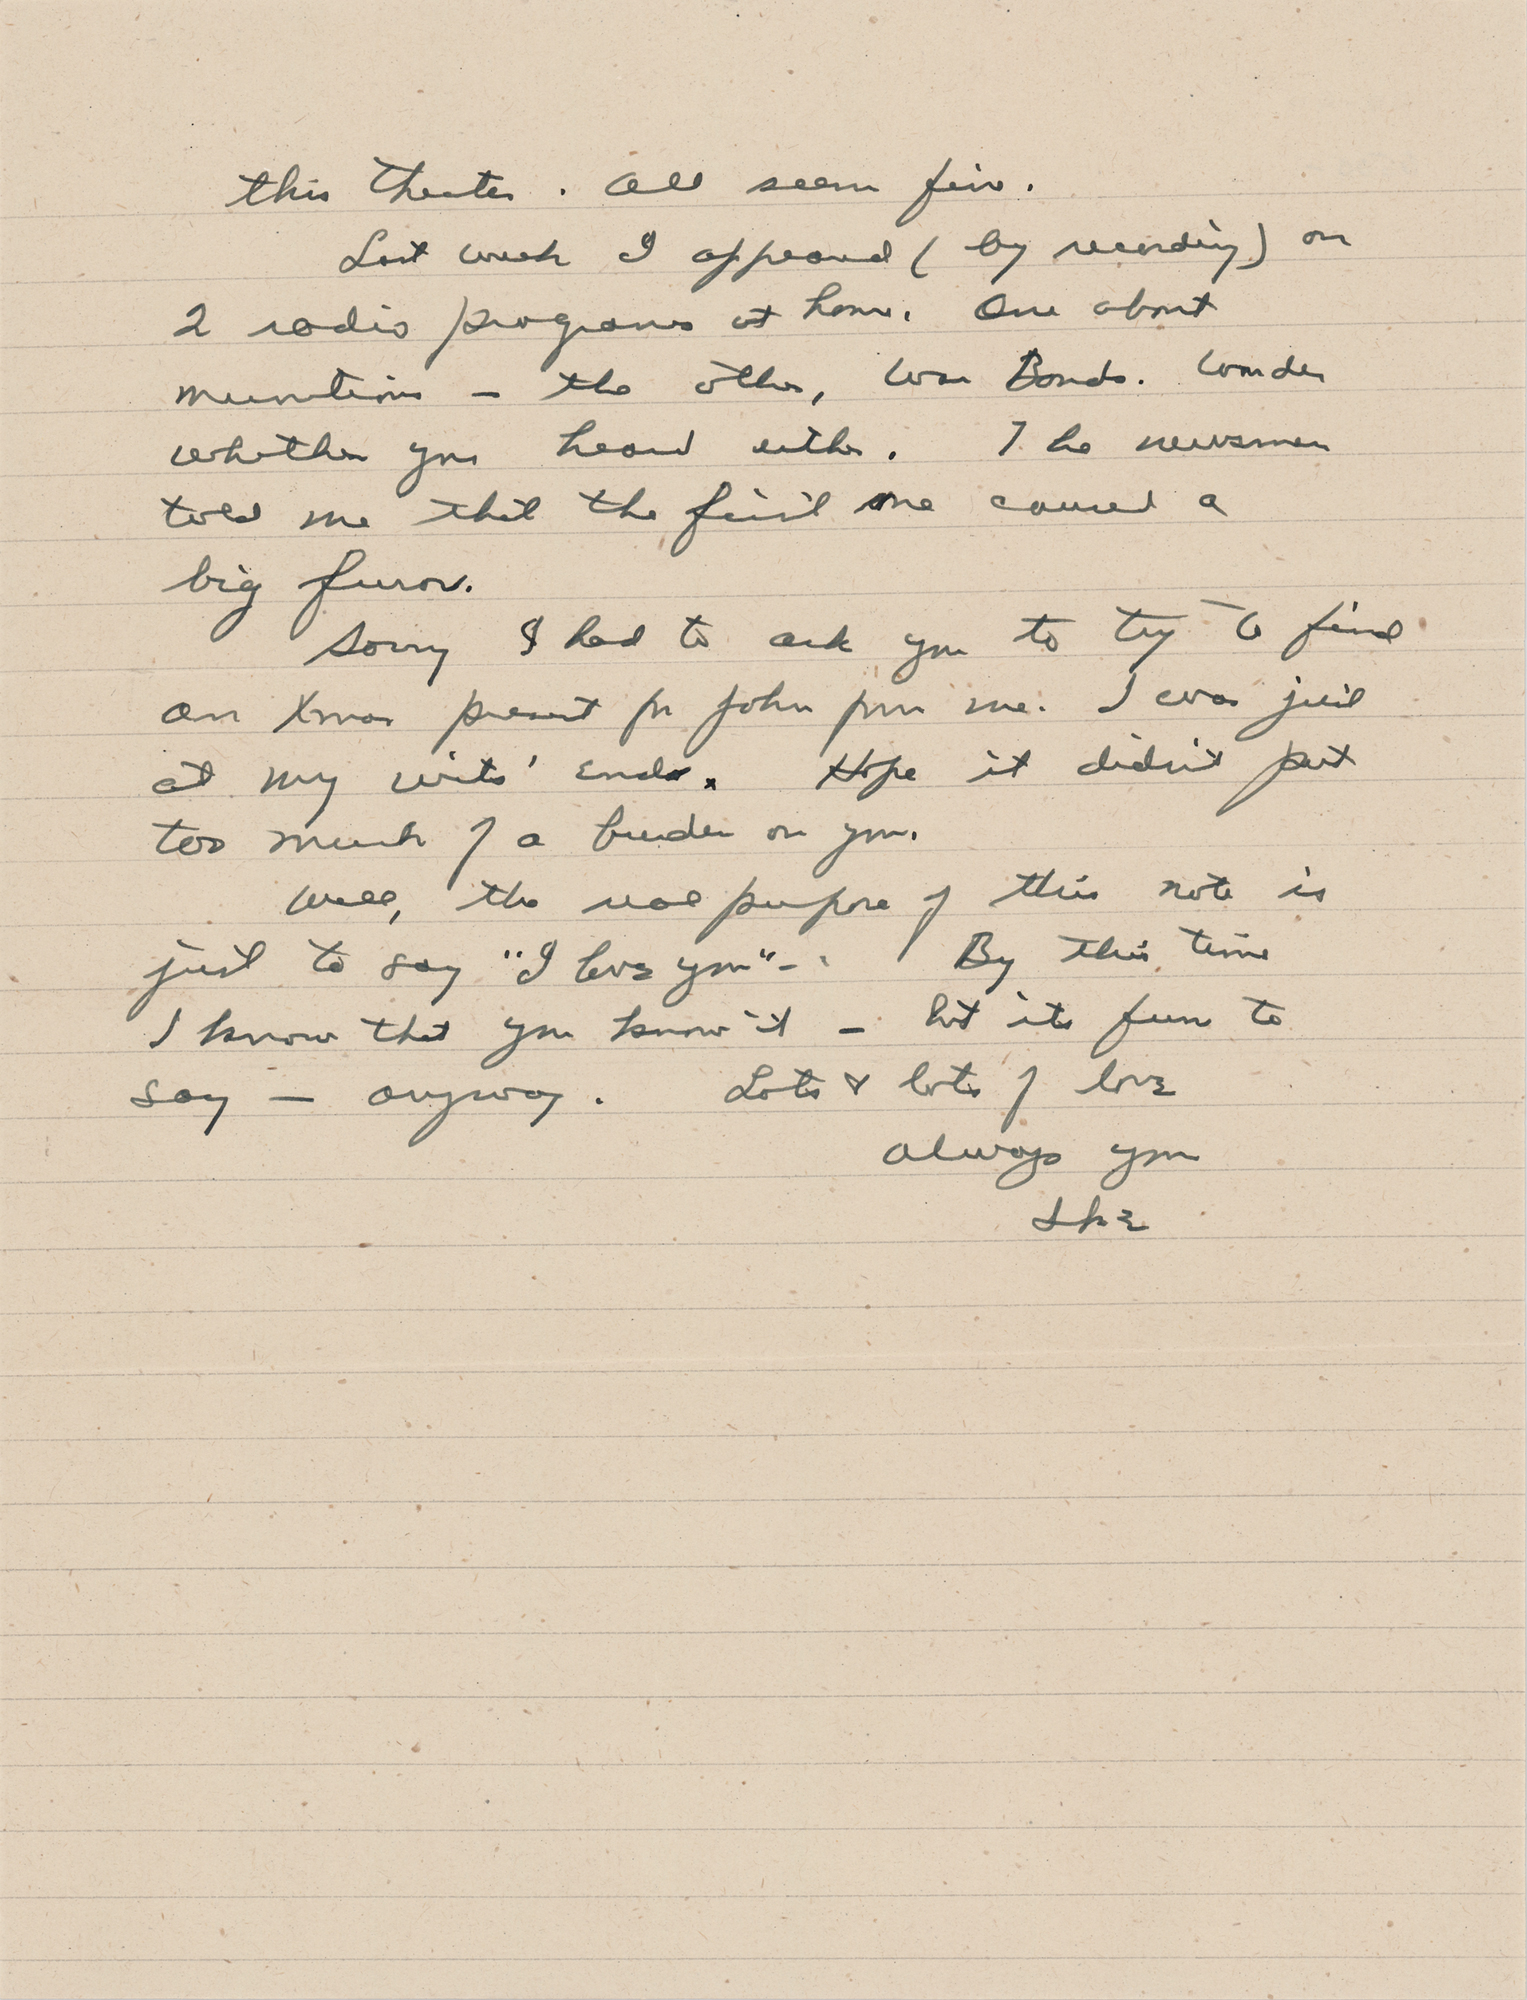 this theater. All seem fine.
Last week I appeared (by recording) on
2 radio programs at home. One about
munitions – the other, War Bonds. Wonder
whether you heard either. The newsmen
told me that the first one caused a
big furor.
Sorry I had to ask you to try to find
an Xmas present for John from me. I was just
at my wits' ends. Hope it didn't put
too much of a burden on you.
Well, the real purpose of this note is
just to say "I love you" -. By this time
I know that you know it – but its fun to
say – anyway. Lots & lots of love
always your
Ike